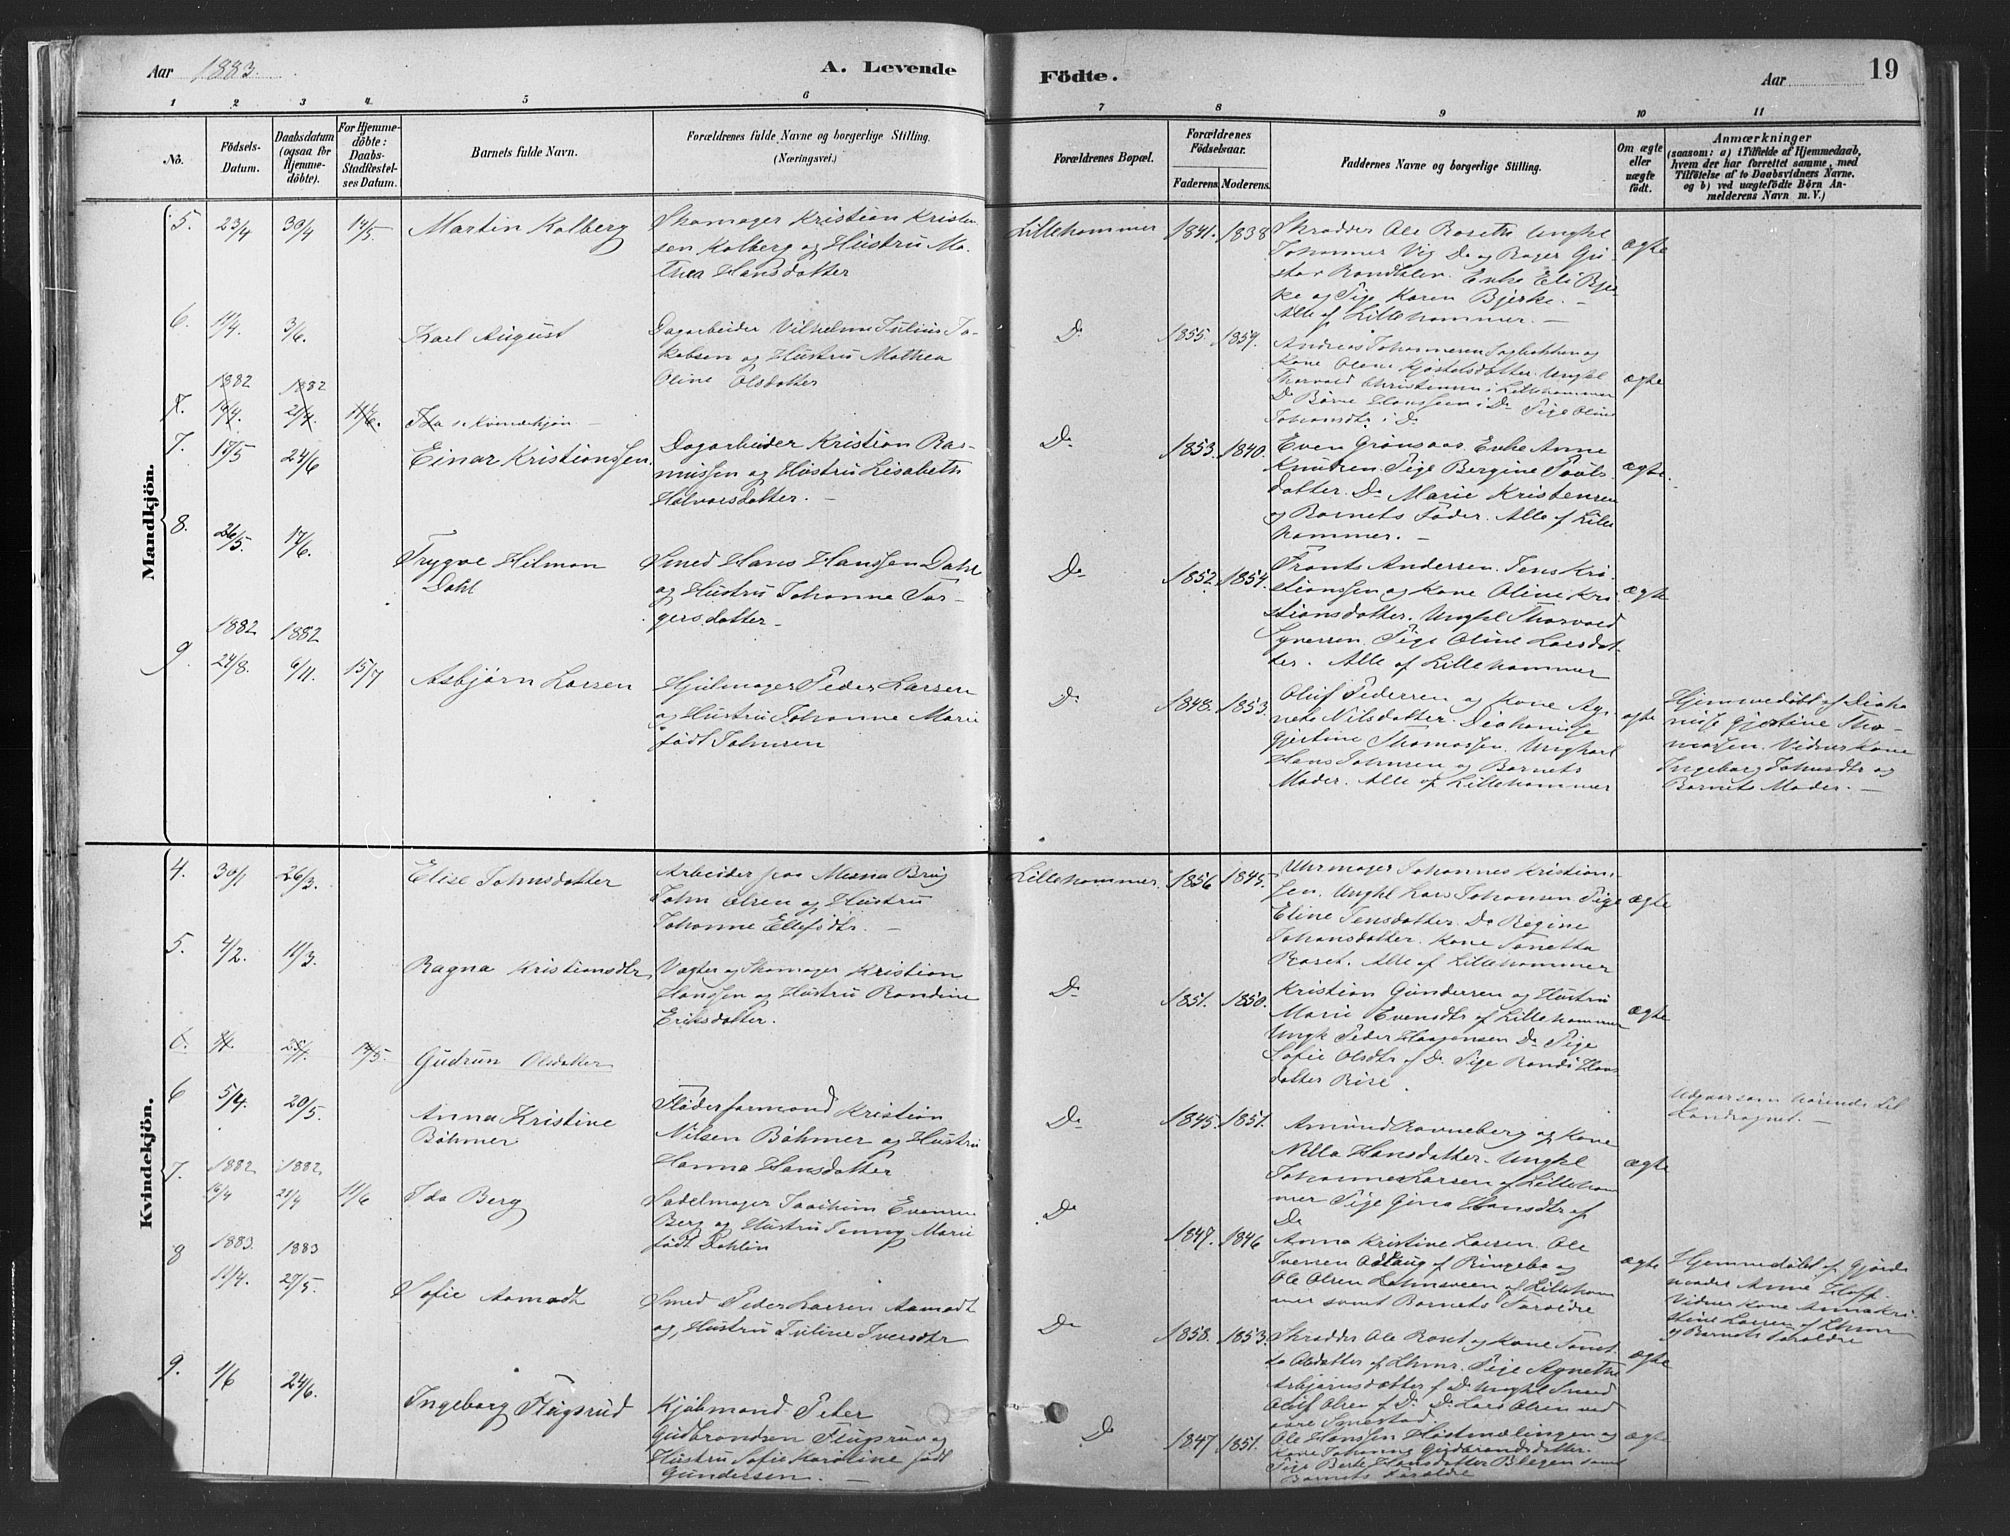 Aar 1883.
A. Levende
Födte.
Aar
19
1 2 3 4. 5 6 7 8 9 10 11
No.
Födsels-
Datum.
Daabsdatum
(ogsaa for
Hjemme-
döbte).
For Hjemme-
döbte:
Daabs-
Stadfæstel-
ses Datum.
Barnets fulde Navn.
Forældrenes fulde Navne og borgerlige Stilling.
(Næringsvei.)
Forældrenes Bopæl.
Forældrenes
Födselsaar.
Faderens. Moderens.
Faddernes Navne og borgerlige Stilling.
Om ægte
eller
uægte
födt.
Anmærkninger
(saasom: a) i Tilfælde af Hjemmedaab,
hvem der har forrettet samme, med
Tilföielse af to Daabsvidners Navne.
og b) ved uægtefödte Börn An-
melderens Navn m. V.)
Mandkjön.
5. 23/4 30/4 14/5 Martin Kolberg
Skomager Kristian Kristen
sen Kolberg og Hustru Ma-
thea Hansdatter
Lillehammer 1841. 1838
Skrædder Ole Roseth Ungkl
Johannes Vig Do og Bager Gu-
stav Randklev. Enke Eli Bjer-
ke og Pige Karen Bjerke. —
Alle af Lillehammer. —
ægte
6. 11/4 3/6. Karl August
Dagarbeider Vilhelm Julius Ja-
kobsen og Hustru Mathea
Oline Olsdatter
Do 1855. 1859.
Andreas Johannesen
Kone Olene Ungkl
Thorvald Christensen i Lillehammer
Do Børne Hanssen i Do Pige Oline
Johansdtr. i Do
ægte
1882 1882
7. 19/4. 21/4 11/6. Ida s: Kvindekjøn —
7. 17/5 24/6 Einar Kristianssen.
Dagarbeider Kristian Ras-
mussen og Hustru Lisabeth
Halvorsdatter. —
Do 1853. 1840.
Even Grønsaas. Enke Anne
Knutsen. Pige Bergine Pouls-
datter. Do Marie Kristensen
og Barnets Fader. Alle af Lille
hammer. —
ægte.
8. 26/5. 17/6. Trygve Hilman
Dahl
Smed Hans Hanssen Dahl
og Hustru Johanne Tor-
gersdatter. —
Do 1852. 1854.
Frants Andersen. Jens Kri-
stianssen og Kone Oline Kri-
stiansdatter. Ungkl Thorvald
Syversen Pige Oline Larsdat-
ter. Alle af Lillehammer
ægte
1882 1882
9. 24/8. 6/11. 15/7 Asbjørn Larsen
Hjulmager Peder Larsen
og Hustru Johanne Marie
født Johnsen
Do 1848. 1853.
Oluf Pedersen og Kone Ag-
nete Nilsdatter. Diakonisse
Gjertine Thomassen. Ungkarl
Hans Johnsen og Barnets
Moder. Alle af Lillehammer
ægte
Hjemmedøbt af Diako
nisse Gjertine Tho-
massen. Vidner Kone
Ingeborg Johnsdtr og
Barnets Moder. —
Kvindekjön.
4. 30/1 26/3. Elise Johnsdatter
Arbeider paa Mesna Brug
John Olsen og Hustru
Johanne Ellefsdtr. —
Lillehammer. 1856 1845.
Uhrmager Johannes Kristian-
sen. Ungkl Lars Johansen Pige
Eline Jensdatter. Do Regine
Johansdatter. Kone Tonetta
Roset. Alle af Lillehammer
ægte
5. 4/2. 11/3. Ragna Kristiansdtr
Vægter og Skomager Kristian
Hanssen og Hustru Randine
Eriksdatter.
Do 1851. 1850.
Kristian Gundersen og Hustru
Marie Evensdtr af Lillehammer
Ungk Peder Haagensen Do Pige
Sofie Olsdtr af Do Pige Randi Hans
datter Rise.
ægte
6. 25/4. 14/5. Gudrun Olsdatter
6 5/4. 20/5. Anna Kristine
Bøhmer
Fløderformand Kristian
Nilsen Bøhmer og Hustru
Hanna Hansdatter
Do 1845. 1851.
Amund Ravneberg og Kone
Nilla Hansdatter. Ungkl
Johannes Larsen af Lilleham
mer Pige Gina Hansdtr af
Do
ægte
Landsognet. —
1882 1882
7. 19/4 21/4 11/6 Ida Berg
Sadelmager Joachim Evensen
Berg og Hustru Jenny Marie
født Dahlin
Do 1847. 1846
Anna Kristine Larsen. Ole
Iversen Odlaug af Ringebo og
Ole Olsen af Lilleham
mer samt Barnets Foræeldre
ægte
Hjemmedøbt af Gjorde
moder Anne Hoff.
Vidner Kone Anna Kri-
stine Larsen af Lhmr
og Barnets Forældre
1883. 1883
8 11/4. 27/5. Sofie Aamodt
Smed Peder Larsen Aamodt
og Hustru Juline Iversdtr
Do 1858. 1853.
Skrædder Ole Roset og Kone Tonet-
ta Olsdatter af Lhmr. Pige Agnethe
Asbjørnsdatter af Do Ungkl Smed
Adolf Olsen af Do. Do Lars Olsen ved
øvre Smestad.
ægte
9. 1/6 24/6. Ingeborg Flugsrud
Kjøbmand Peter
Gudbrandsen Flugsrud og
Hustru Sofie Karoline født
Gundersen. —
Do 1847 1851.
Ole Hanssen Høstmælingen og
Kone Johanne Gudbrandsdatter.
Pige Berte Hansdatter Blegen samt
Barnets Forældre
ægte